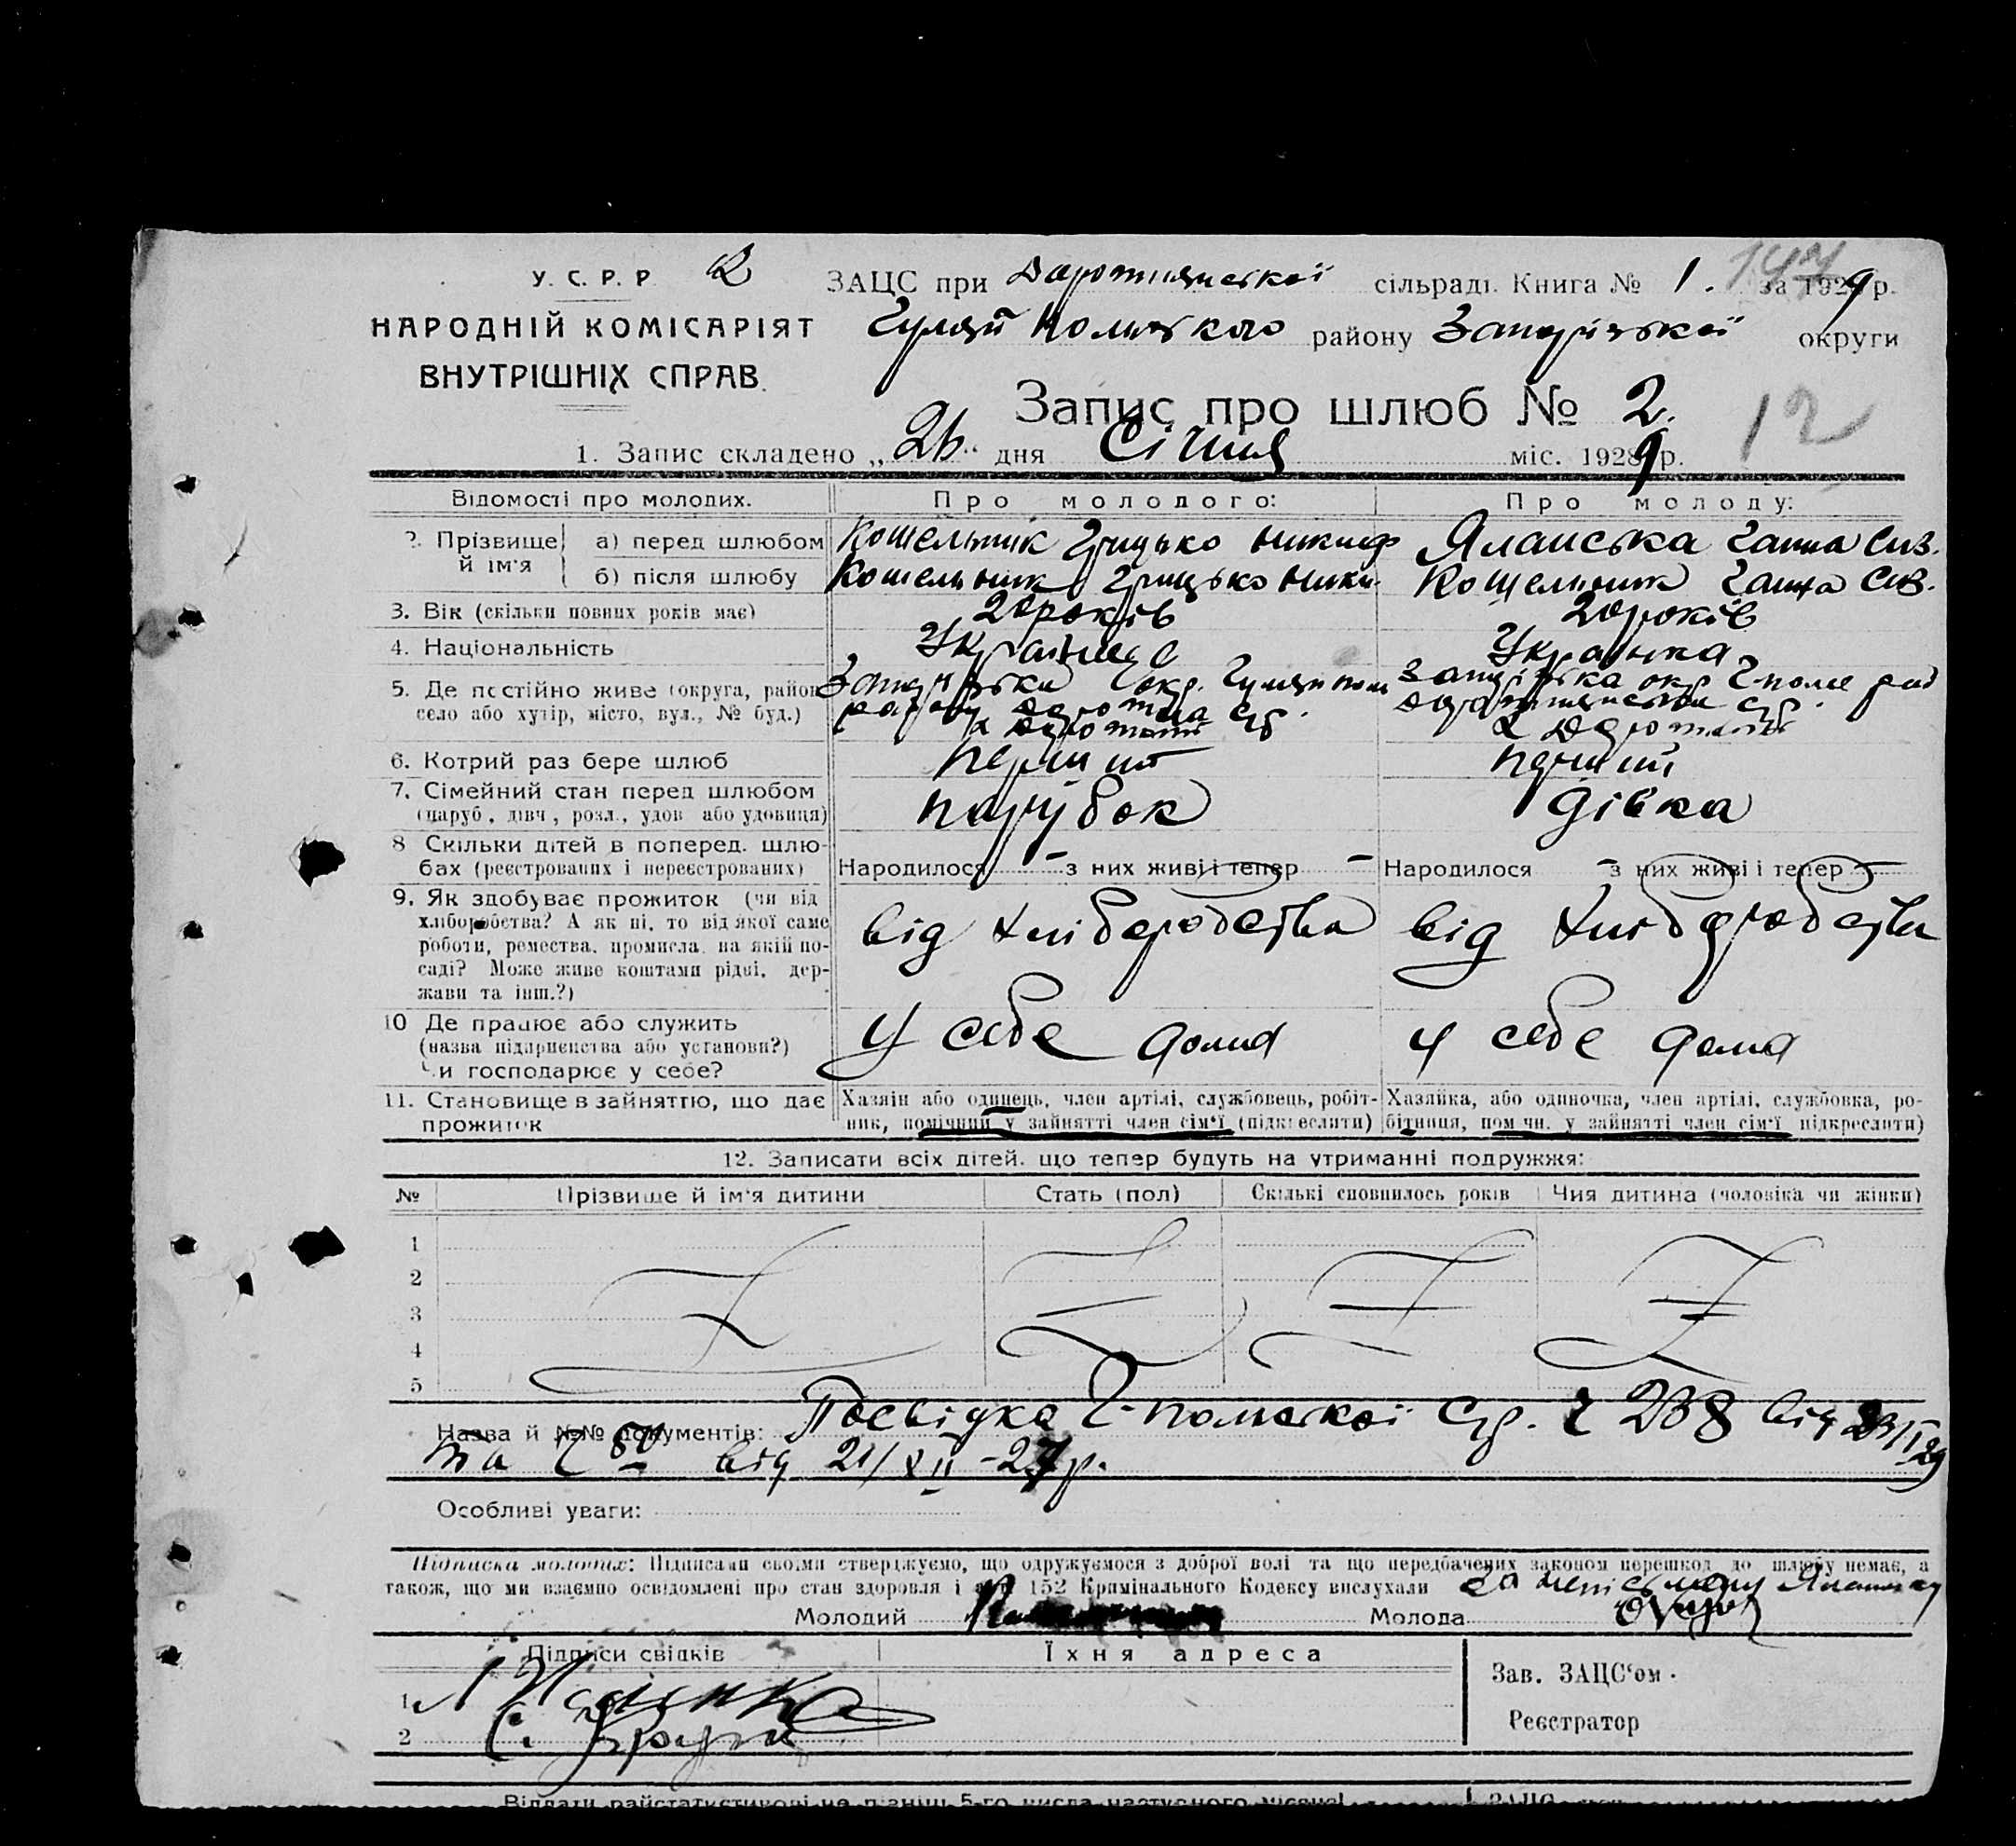 У. С. Р. Р
ЗАЦС при сільраді. Книга № 1. за 1929 р.
НАРОДНІЙ КОМІСАРІЯТ
Гуляй района Запорізької округи
ВНУТРІШНІХ СПРАВ.
Запис про шлюб № 2.
12
1. Запис складено „26" дня Січня міс. 1929 р.
Відомості про молодих. Про молодого: Про молоду:
2. Прізвище й ім'я
а) перед шлюбом Кошельник Грицько Никиф Яланська Ганна Сив.
б) після шлюбу Кошельник Грицько Ники. Кошельник Ганна Сив.
3. Вік (скільки повних років має) 20 років 20 років
4. Національність Українець Українка
5. Де постійно живе (округа, район
село або хутір, місто, вул., № буд.)
6. Котрий раз бере шлюб перший перший
7. Сімейний стан перед шлюбом парубок дівка
(паруб., дівч., розл., удов. або удовиця)
8 Скільки дітей в поперед. шлю-
бах (реєстрованих і нереєстрованих) Народилося – з них живі і тепер – Народилося – з них живі і тепер –
9. Як здобуває прожиток (чи від
хліборобства? А як ні, то від якої саме
роботи, ремества, промисла, на якій по-
саді? Може живе коштами рідні, дер-
жави та інш.?)
від хліборобства від хліборобства
10 Де працює або служить
(назва підприємства або установи?)
Чи господарює у себе?
у себе дома у себе дома
11. Становище в зайняттю, що дає Хазяїн або одинець, член артілі, службовець, робіт- Хазяйка, або одиночка, член артілі, службовка, ро-
прожиток ник, помічний у зайнятті член сім'ї (підкреслити) бітниця, пом чн. у зайнятті член сім'ї підкреслити)
12. Записати всіх дітей, що тепер будуть на утриманні подружжя:
№ Прізвище й ім'я дитини Стать (пол) Скількі сповнилось років Чия дитина (чоловіка чи жінки)
1
2
3
4
5
Назва й №№ документів: Посвідка Г-польської с/р. 238 від 23/I 29
та 80 від 21/XII-27 р.
Особливі уваги:
Підписка молодих: Підписами своїми стверджуємо, що одружуємося з доброї волі та що передбачених законом перешкод до шлюбу немає, а
також, що ми взаємно освідомлені про стан здоровля і арт. 152 Кримінального Кодексу вислухали
Молодий Молода
Підписи свідків Їхня адреса
Зав. ЗАЦС'ом
1.
Реєстратор
2
Віддати райстатистикові не пізніш 5-го числа наступного місяця!